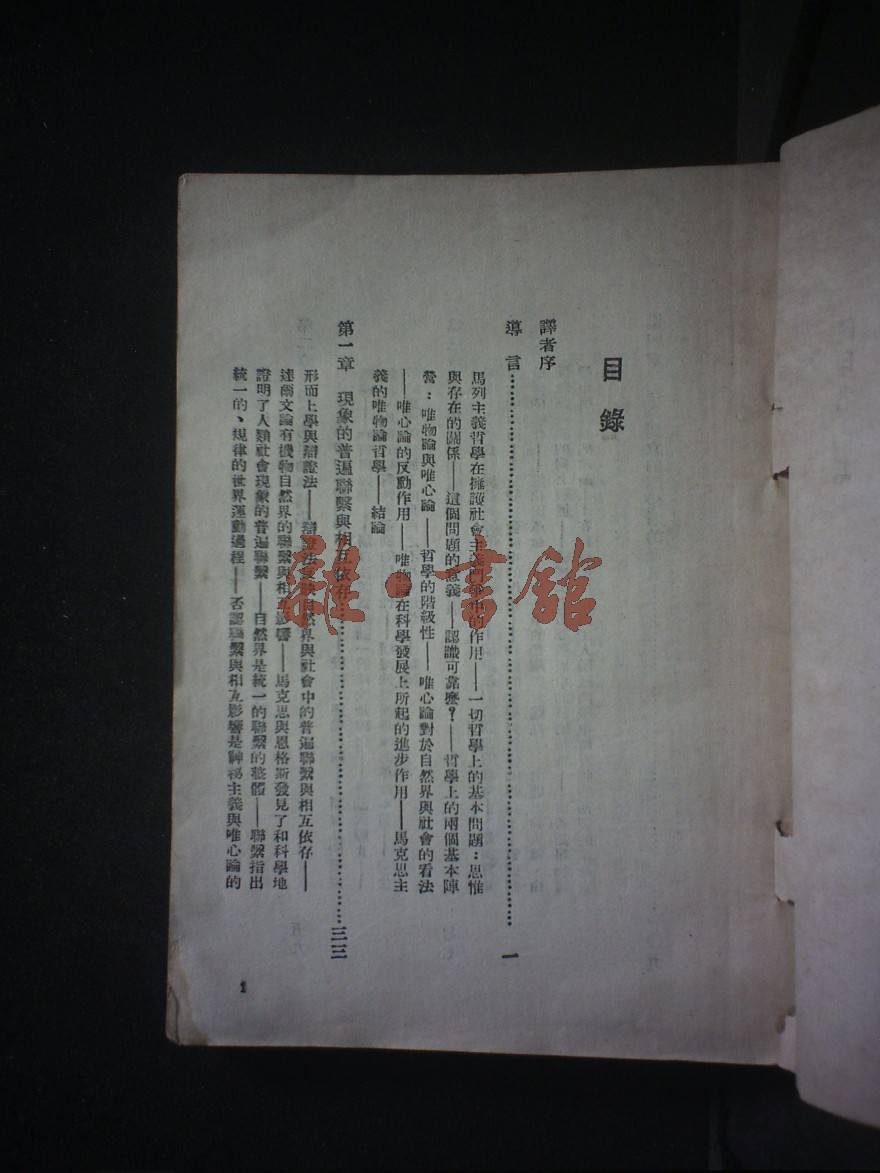 目錄
譯者序
導言……………………一
馬列主義哲學在擁護社會主義鬥爭中的作用——一切哲學上的基本問題：思惟
與存在的關係——這個問題的意義——認識可靠麼？——哲學上的兩個基本陣
營：唯物論與唯心論——哲學的階級性——唯心論對於自然界與社會的看法
——唯心論的反動作用——唯物論在科學發展上所起的進步作用——馬克思主
義的唯物論哲學——結論
第一章 現象的普遍聯繫與相互依存……………………三三
形而上學與辯證法——辯證法論自然界與社會中的普遍聯繫與相互依存——
達爾文論有機物自然界的聯繫與相互影響——馬克思與恩格斯發見了和科學地
證明了人類社會現象的普遍聯繫——自然界是統一的聯繫的整體——聯繫指出
統一的、規律的世界運動過程——否認聯繫與相互影響是神秘主義與唯心論的
1
雜·書館